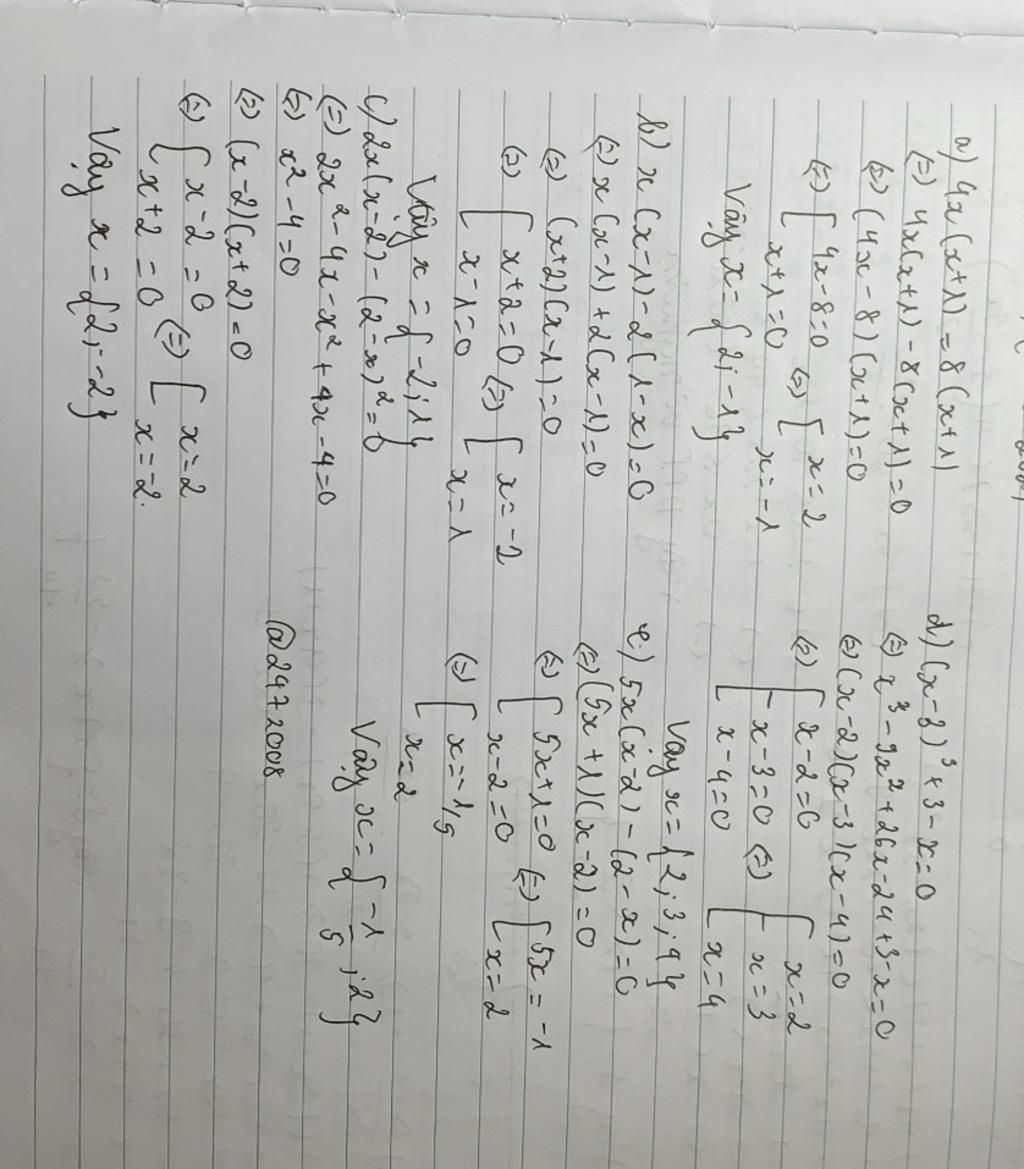 a) 4x(x+1) = 8(x+1)
(=) 4x(x+1) - 8(x+1) = 0
(=) (4x - 8)(x+1) = 0
(=) [ 4x - 8 = 0 (=) [ x = 2
x+1 = 0 x = -1
Vậy x = {2; -1}
b) x(x-1) - 2(1-x) = 0
(=) x(x-1) + 2(x-1) = 0
(=) (x+2)(x-1) = 0
(=) [ x+2 = 0 (=) [ x = -2
x-1 = 0 x = 1
Vậy x = {-2; 1}
c) 2x(x-2) - (2-x)² = 0
(=) 2x² - 4x - x² + 4x - 4 = 0
(=) x² - 4 = 0
(=) (x-2)(x+2) = 0
(=) [ x-2 = 0 (=) [ x = 2
x+2 = 0 x = -2.
Vậy x = {2, -2}
d) (x-3)³ + 3 - x = 0
(=) x³ - 9x² + 26x - 24 + 3 - x = 0
(=) (x-2)(x-3)(x-4) = 0
(=) [ x-2 = 0 [ x = 2
x-3 = 0 (=) x = 3
x-4 = 0 x = 4
Vậy x = {2; 3; 4}
e) 5x(x-2) - (2-x) = 0
(=) (5x+1)(x-2) = 0
(=) [ 5x+1 = 0 (=) [ 5x = -1
x-2 = 0 x = 2
(=) [ x = -1/5
x = 2
Vậy x = {-1/5; 2}
@2472008